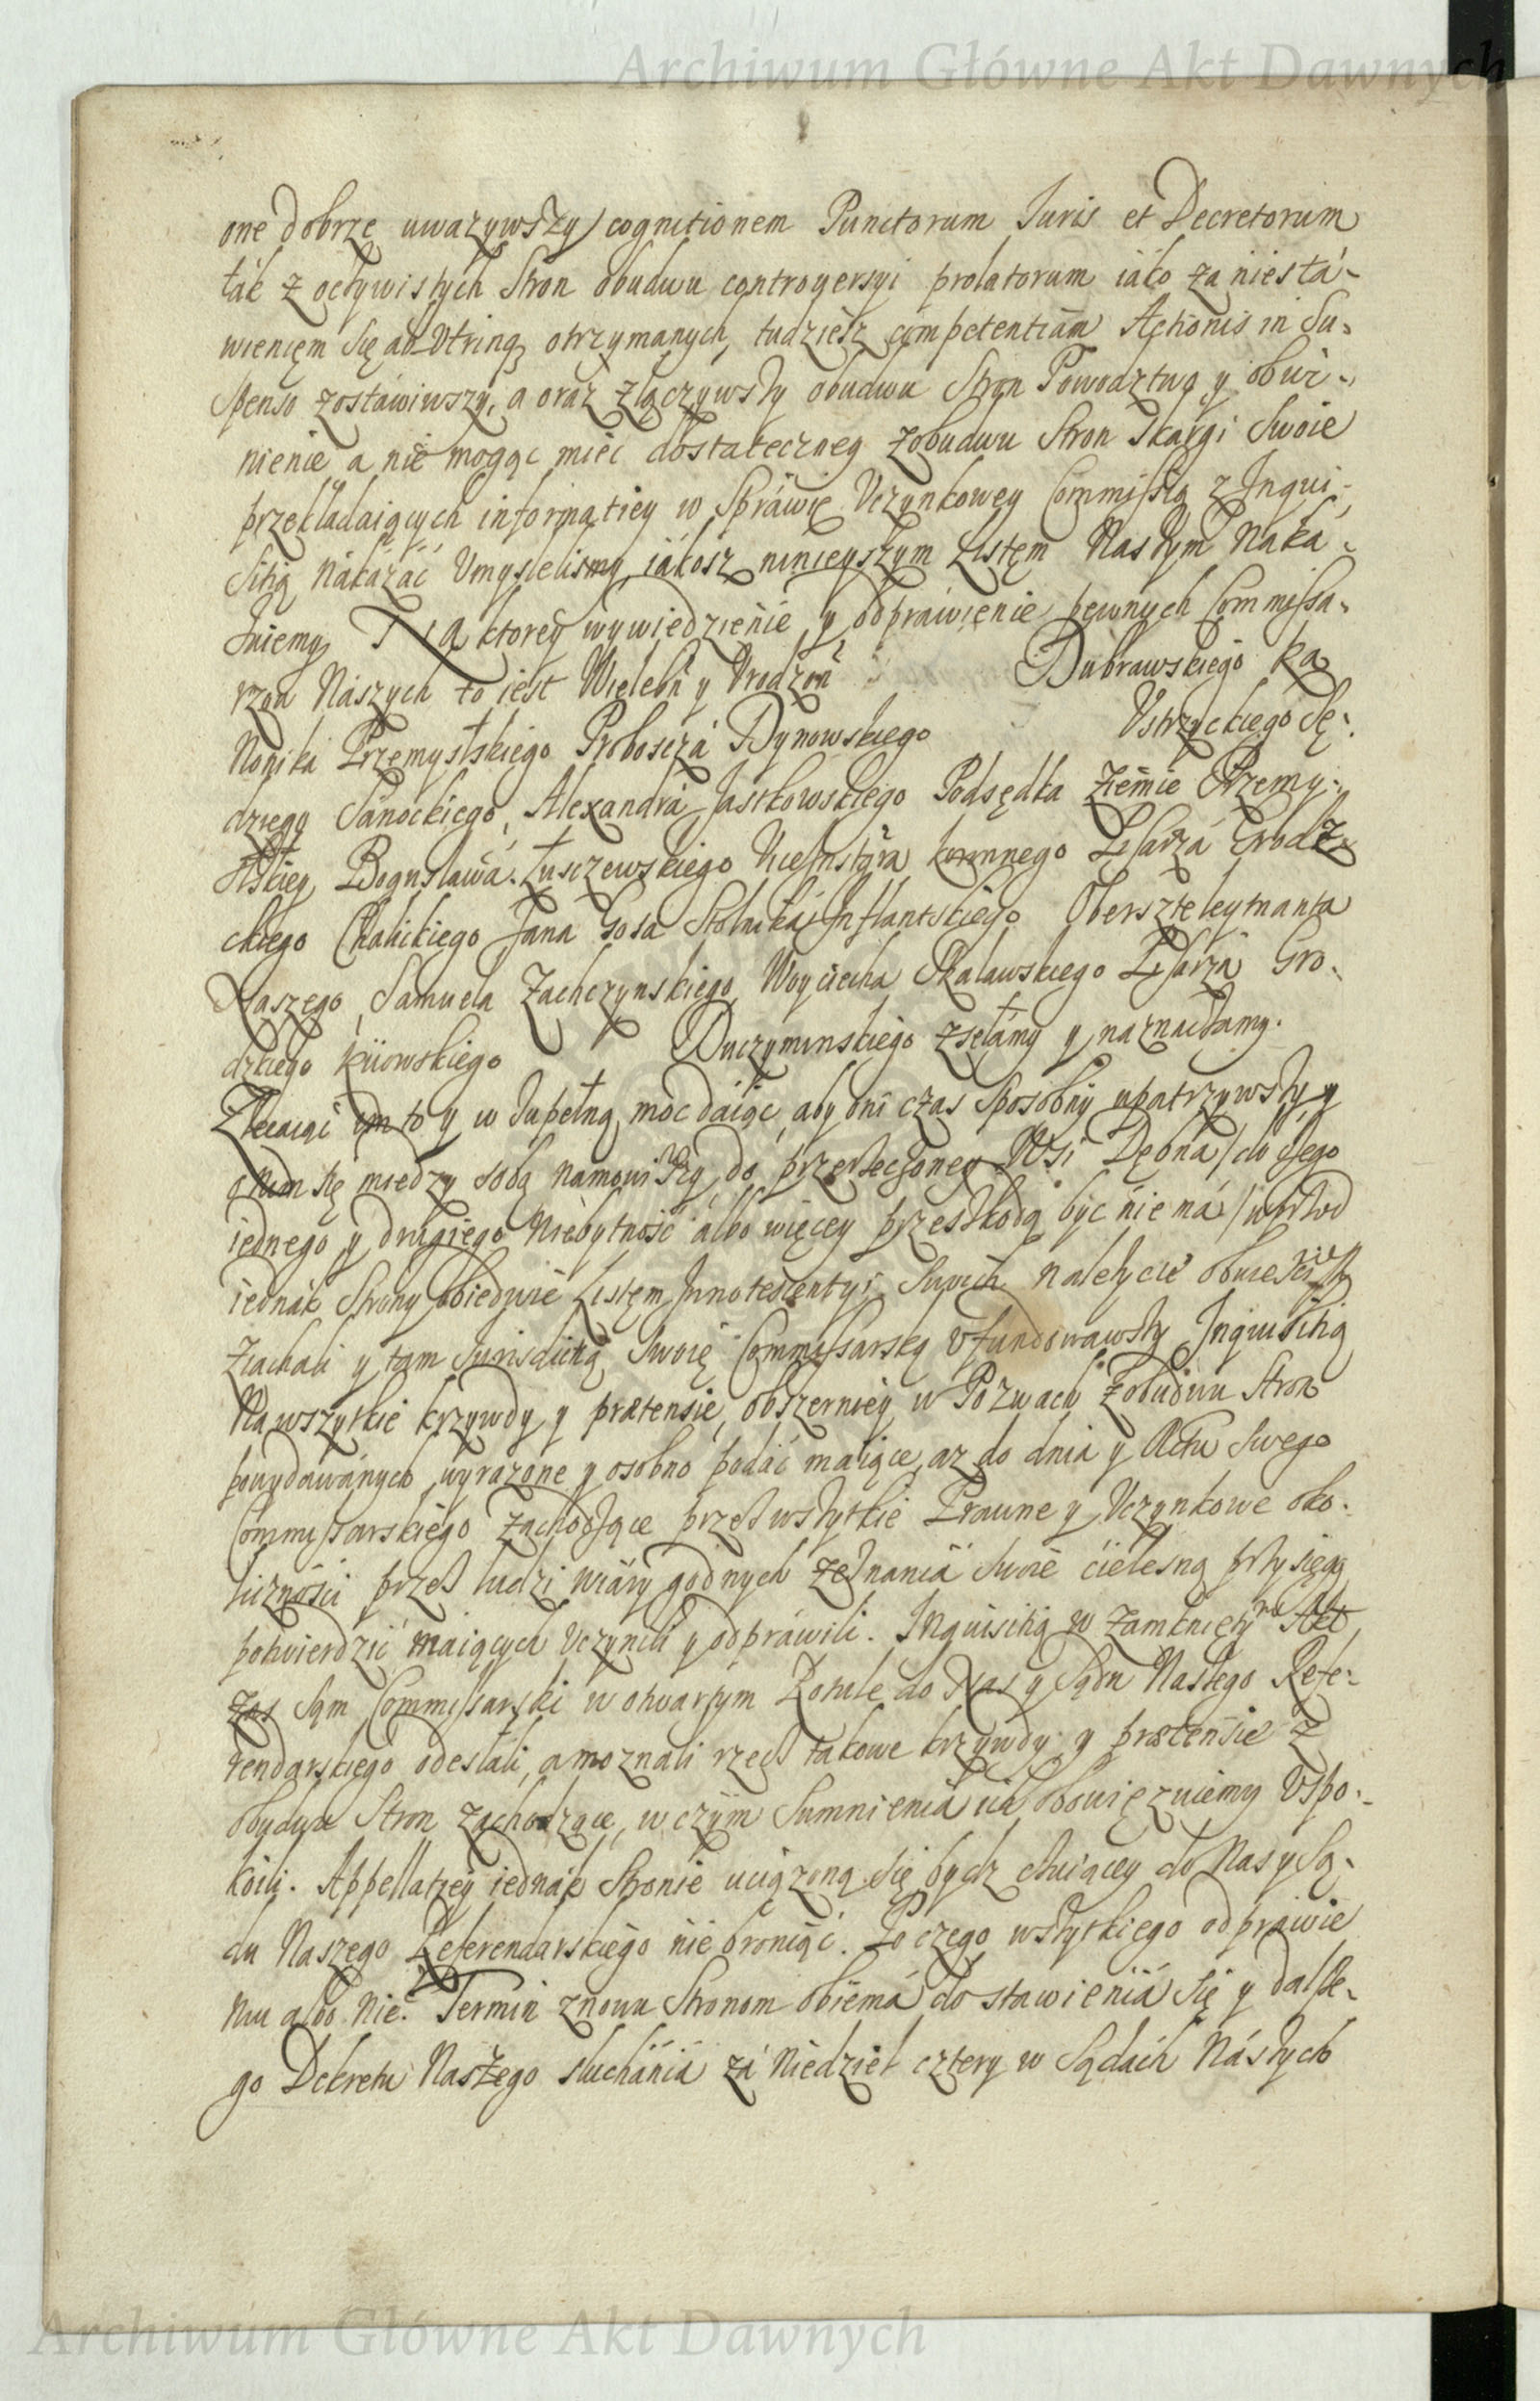 Archiwum Główne Akt Dawnych
one dobrze uwazywszy cognitionem Punctorum Iuris et Decretorum
ták z oczywistych Stron obudwu controversyi prolatorum iáko za niestá-
wieniem się ab Utrinq otrzymanych, tudziesz competentiam Actionis in Su-
spenso zostáwiwszy, a oraz złączywszy obudwu Stron Powodztwa y obwi-
nienie a nie mogąc mieć dostateczney z obudwu Stron Skargi swoie
przekładaiących informatiey w Spráwie Uczynkowey Commissią z Inqui-
sitią nákázáć Umyslelismy, iákosz ninieyszym Listem Naszym Naká-
zuiemy. Na ktorey wywiedzienie y odpráwienie pewnych Commissa-
rzow Nászych to iest Wielebn y Urodzon Dubrawskiego Ka
Noniká Przemyslskiego Proboszczá Dynowskiego Ustrzyckiego Sę-
dziego Sánockiego, Alexandrá Jáskowskiego Podsędka Ziemie Przemy-
slskiey Bogusłáwá Łusczewskiego Viceinstigatora koronnego Pisarzá Grodz
ckiego Chalickiego Jana Gosa Stolniká Inflantskiego Oberszteleytnanta
Naszego, Samuela Zachczynskiego, Woyciecha Skalawskiego Pisarzá Gro-
dzkiego Kiiowskiego Duczyminskiego zsełámy y naznaczamy.
Zlecaiąc im to y w zupełną moc daiąc, aby oni czas sposobny upatrzywszy y
o nim się miedzy sobą námowiwszy, do przerzeczoney Wsi Dębna / do czego
iednego y drugiego Niebytność albo więcey przeszkodą być nie má / wprzod
iednák Strony obiedwie Listem Innotescentyi swych nalezycie obwiesciwszy
Ziachali y tam Iurisdictią Swoię Commissarską ufundowawszy Inquisitią
Na wszytkie krzywdy y prætensie, obszerniey w Pozwach z obudwu Stron
powydawánych wyrázone y osobno podáć maiące, az do dnia y Actu Swego
Commissarskiego zachodzące przez wszytkie Prawne y Uczynkowe oko-
liczności przez ludzi wiáry godnych zeznania swoie cielesną przysięgą
potwierdzić maiących uczynili y odpráwili. Inquisitią w zamknięty Act
zas sąm Commissarski w otwartym Rotule do Nas y Sądu Naszego Refe-
rendarskiego odesłali, a moznali rzecz takowe krzywdy y prætensie z
obudwu Stron zachodzące, w czym Sumnienia ich obowięzuiemy uspo-
koili. Appellatiey iednák Stronie uciązoną się bydz chcącey do Nas y Są-
du Naszego Referendarskiego nie broniąc. Po czego wszytkiego odprawie
niu albo nie. Termin znowu Stronom obiemá do stawieniá się y dalsze-
go Dekretu Naszego słuchániá zá Niedziel cztery w Sądách Nászych
Archiwum Główne Akt Dawnych